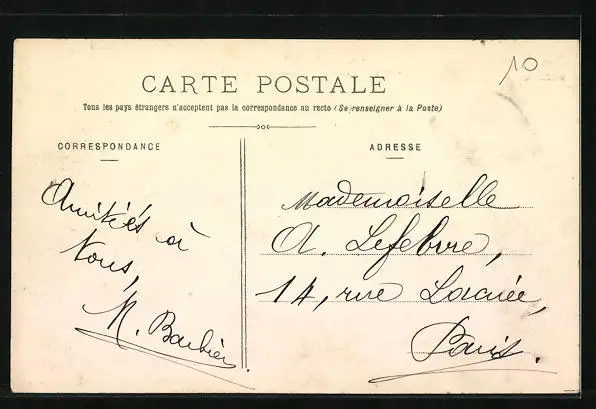 10
CARTE POSTALE
Tous les pays étrangers n'acceptent pas la correspondance au recto (Se renseigner à la Poste)
CORRESPONDANCE
ADRESSE
Amitiés à
tous,
M. Barbier
Mademoiselle
A. Lefebvre,
14, rue Lacuée,
Paris.